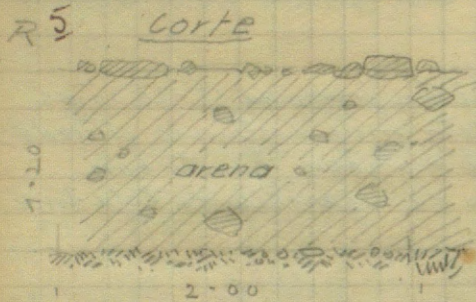 R 5 Corte
arena
1.20
2.00